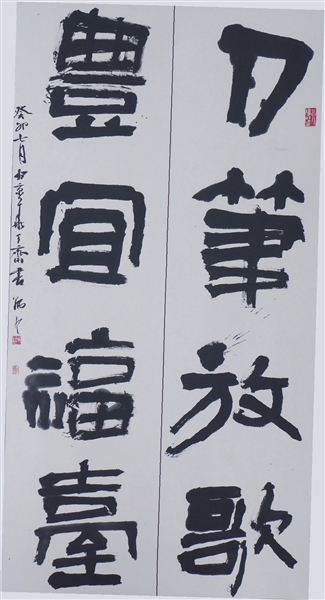 刀筆放歌
豐宜福臺
癸卯七月 齋書